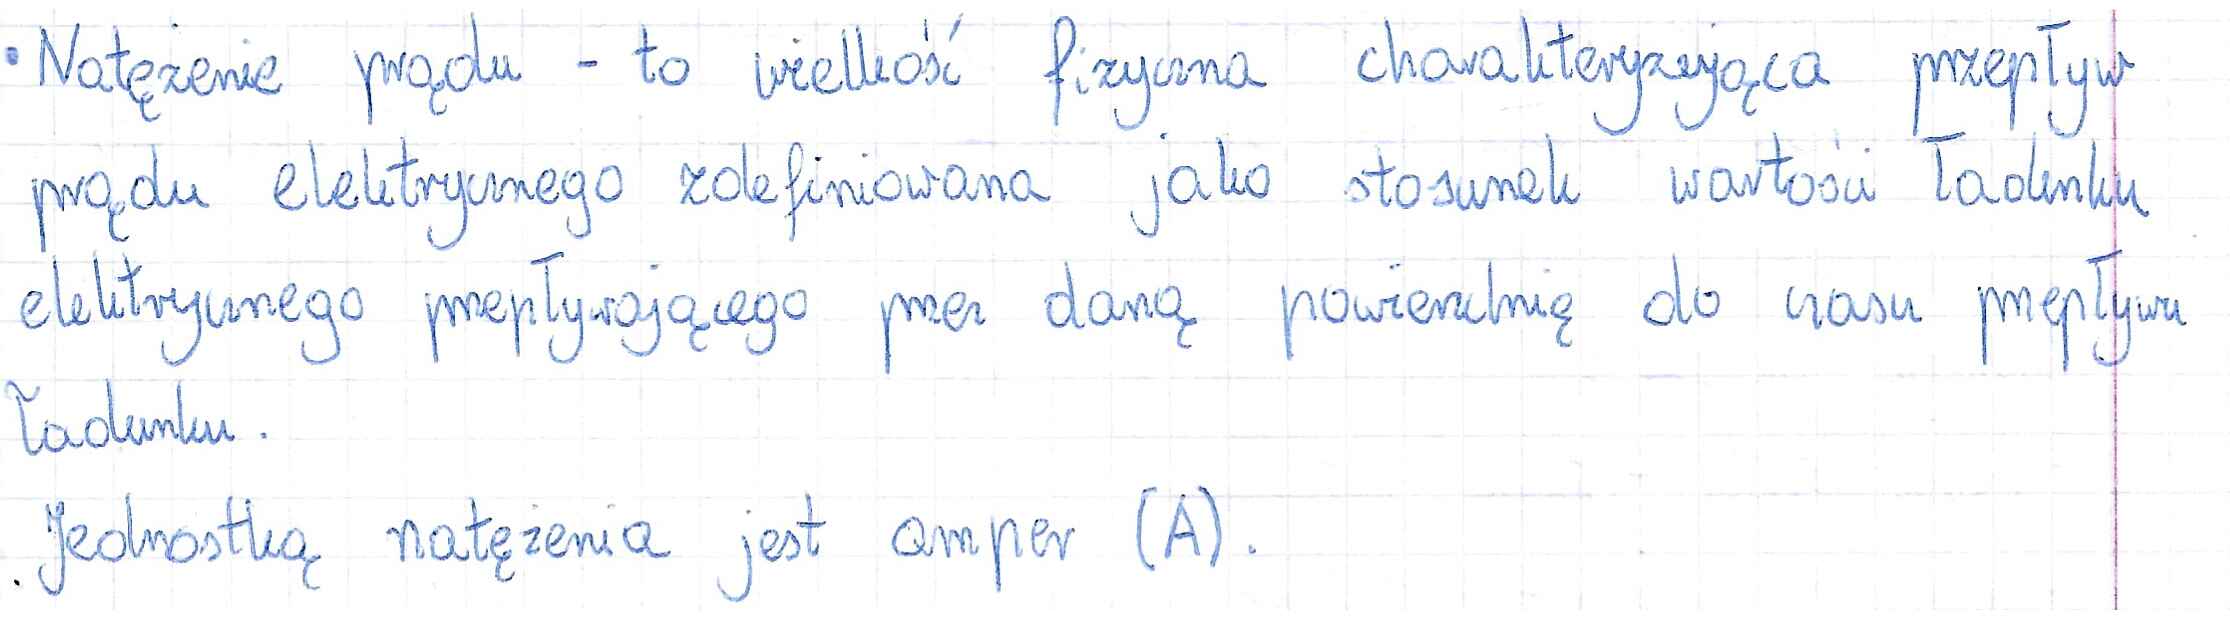 • Natężenie prądu - to wielkość fizyczna charakteryzująca przepływ
prądu elektrycznego zdefiniowana jako stosunek wartości ładunku
elektrycznego przepływającego przez daną powierzchnię do czasu przepływu
ładunku.
Jednostką natężenia jest amper (A).